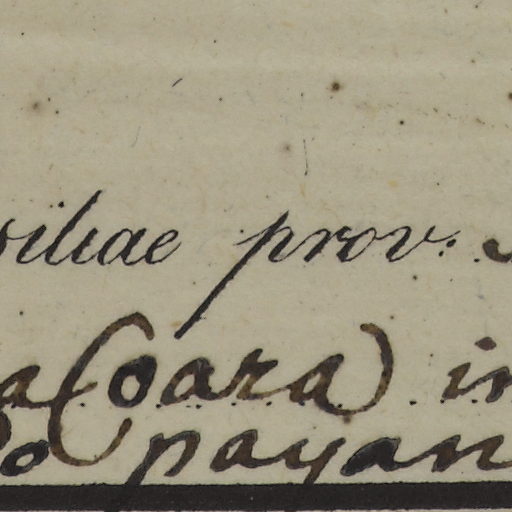 siliae prov.
a (oara) in
o payan